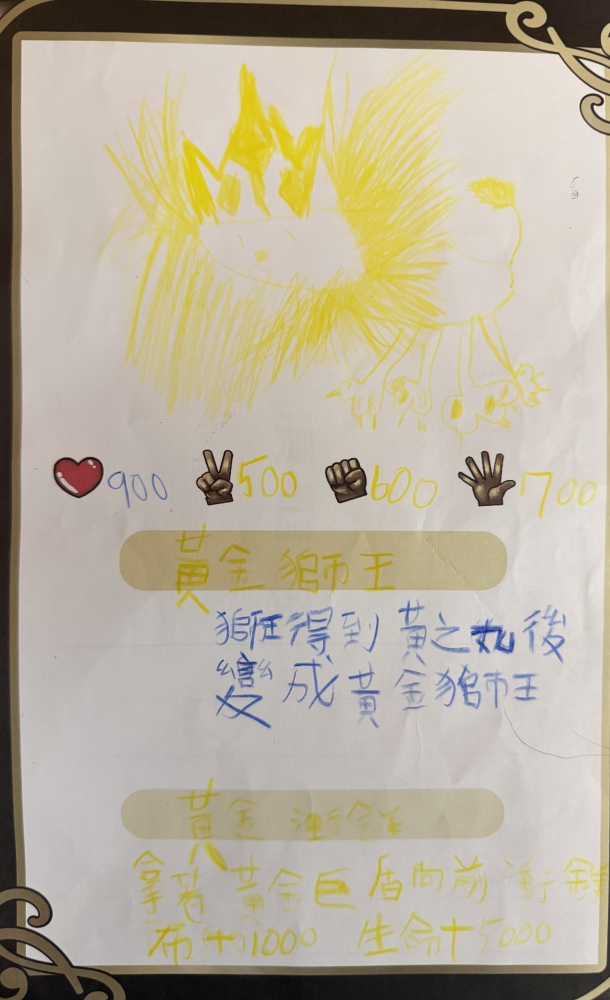 900 500 600 700
黃金獅王
獅王得到黃之丸後
變成黃金獅王
黃金衝鋒
拿著黃金巨盾向前衝鋒
布+1000 生命+5000